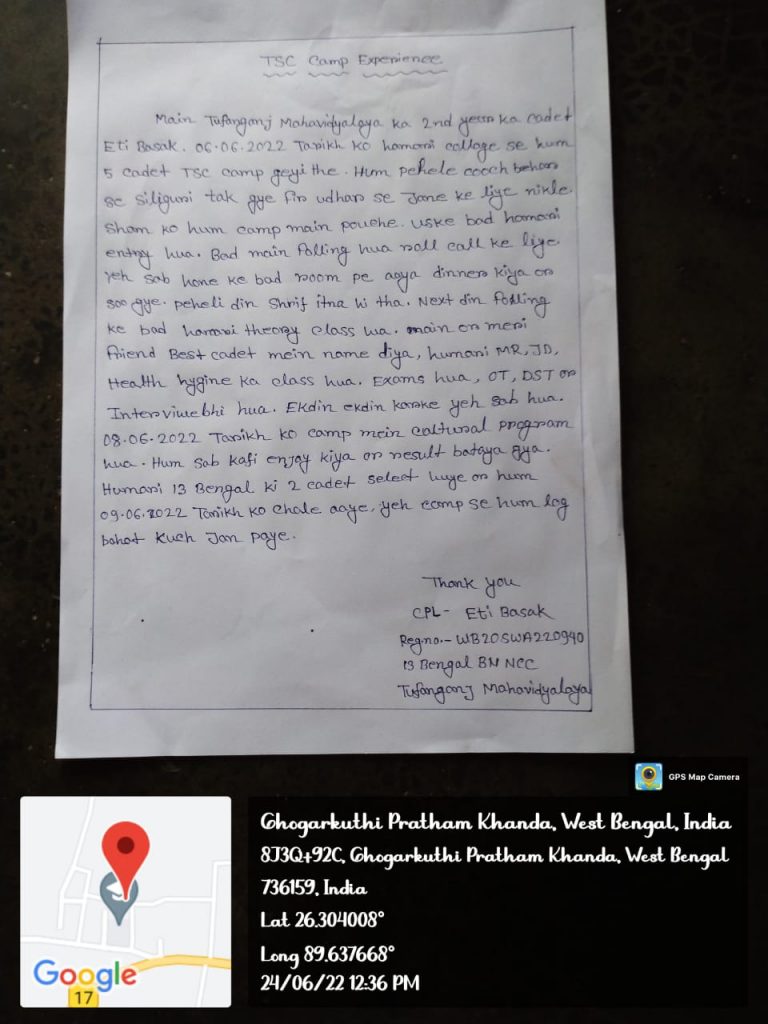 TSC Camp Experience
Main Tufanganj Mahavidyalaya ka 2nd year ka cadet
Eti Basak. 06.06.2022 Tarikh ko hamari collage se hum
5 cadet TSC camp geyi the. Hum pehele cooch behar
se siliguri tak gye fir udhar se Jane ke liye nikle.
Sham ko hum camp main pouche. uske bad hamari
entry hua. Bad main folling hua roll call ke liye.
Yeh sab hone ke bad room pe aaya dinner kiya or
soo gye. peheli din Shrif itna hi tha. Next din folling
ke bad hamari theory class hua. main or meri
friend Best cadet mein name diya, humari MR, JD,
Health hygine ka class hua. Exams hua, OT, DST or
Interviwebhi hua. Ekdin ekdin karke yeh sab hua.
08.06.2022 Tarikh ko camp mein caltural program
hua. Hum sab kafi enjoy kiya or result bataya gya.
Humari 13 Bengal ki 2 cadet select huye or hum
09.06.2022 Tarikh ko chale aaye. yeh camp se hum log
bahat kuch Jan paye.
Thank you
CPL- Eti Basak
Reg.no.- WB20SWA220940
13 Bengal BN NCC
Tufanganj Mahavidyalaya
GPS Map Camera
Ghogarkuthi Pratham Khanda, West Bengal, India
8J3Q+92C, Ghogarkuthi Pratham Khanda, West Bengal
736159, India
Lat 26.304008°
Long 89.637668°
24/06/22 12:36 PM
Google
17